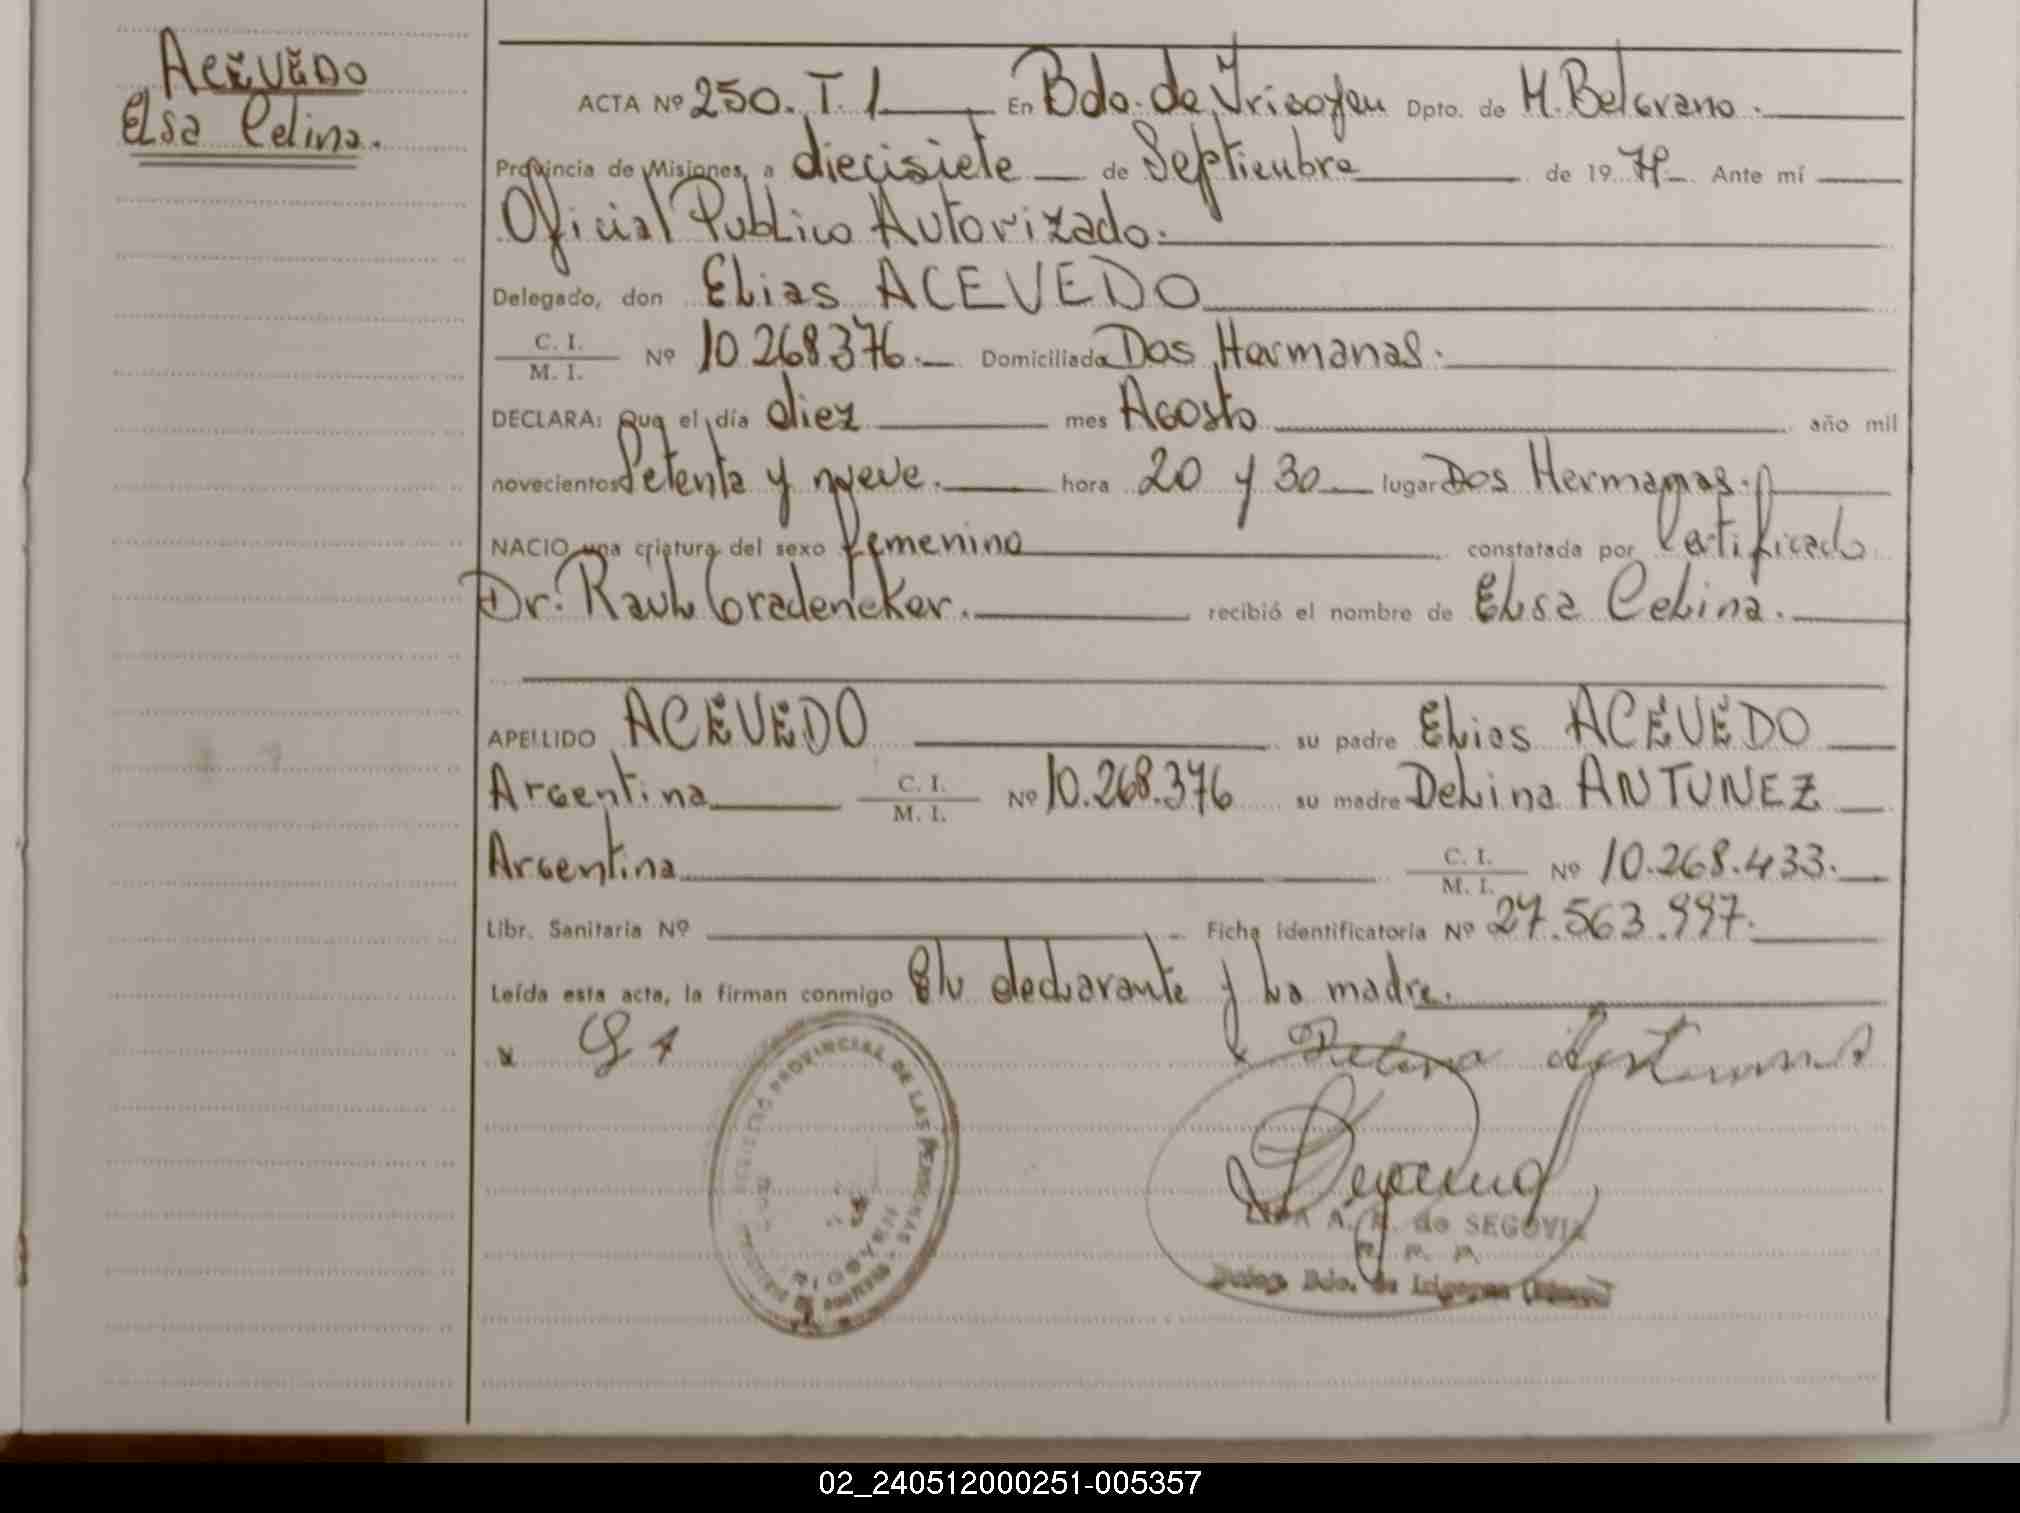 ACEVEDO
Elsa Celina.
ACTA Nº 250. T. 1 En Bdo. de Yrigoyen Dpto. de M. Belgrano.
Provincia de Misiones, a diecisiete de Septiembre de 1979 Ante mí
Oficial Publico Autorizado.
Delegado, don Elias ACEVEDO
C. I.
M. I. Nº 10.268.376. Domiciliado Dos Hermanas.
DECLARA: Que el día diez mes Agosto año mil
novecientos Setenta y nueve. hora 20 y 30 lugar Dos Hermanas.
NACIO una criatura del sexo femenino constatada por Certificado
Dr. Raul Gradeneker. recibió el nombre de Elsa Celina.
APELLIDO ACEVEDO su padre Elias ACEVEDO
Argentina C. I.
M. I. Nº 10.268.376 su madre Delina ANTUNEZ
Argentina C. I.
M. I. Nº 10.268.433.
Libr. Sanitaria Nº Ficha identificatoria Nº 27.563.997.
Leída esta acta, la firman conmigo El declarante y La madre.
REGISTRO PROVINCIAL DE LAS PERSONAS
A. de SEGOVIA
Deleg. Bdo. de Irigoyen
02_240512000251-005357